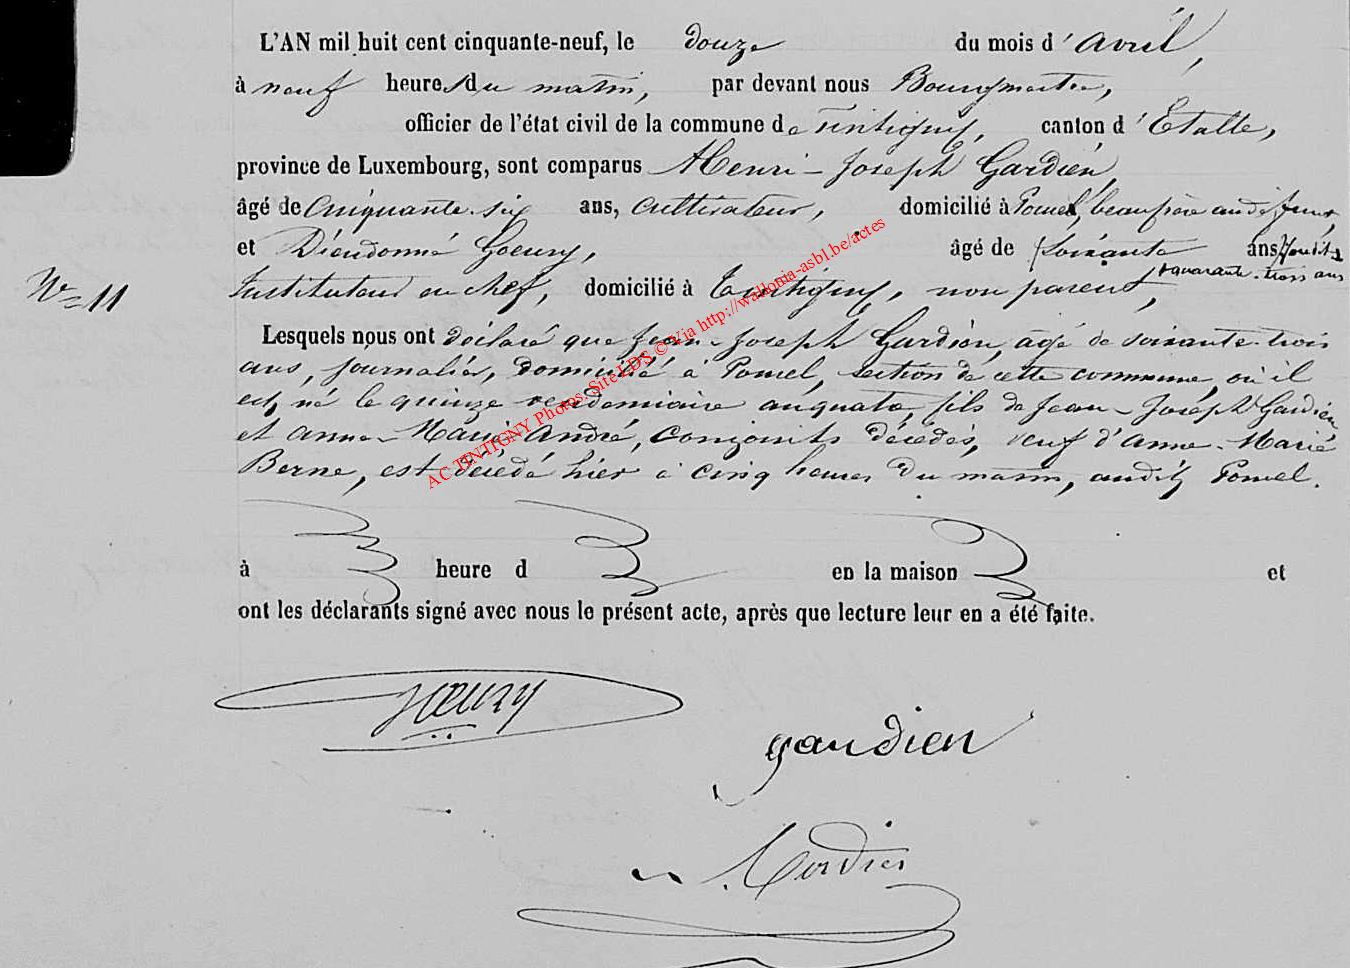 L'AN mil huit cent cinquante-neuf, le douze du mois d'avril,
à neuf heures du matin, par devant nous Bourgmestre,
officier de l'état civil de la commune de Tintigny, canton d'Etalle,
province de Luxembourg, sont comparus Henri-Joseph Gardien,
âgé de Cinquante-six ans, cultivateur, domicilié à Poncel, beaufrère au défunt,
et Dieudonné Goeury, âgé de soixante ans
quarante-trois ans
N° 11 Instituteur en chef, domicilié à Tintigny, non parent,
Lesquels nous ont déclaré que Jean-Joseph Gardien, âgé de soixante-trois
ans, journalier, domicilié à Poncel, section de cette commune, où il
est né le quinze vendemiaire an quatre, fils de Jean-Joseph Gardien
et Anne-Marie André, conjoints décédés, veuf d'Anne-Marie
Berne, est décédé hier à cinq heures du matin, audit Poncel.
à heure d en la maison et
ont les déclarants signé avec nous le présent acte, après que lecture leur en a été faite.
Goeury
gardien
AC TINTIGNY Photos. Site LDS © Via http://wallonia-asbl.be/actes